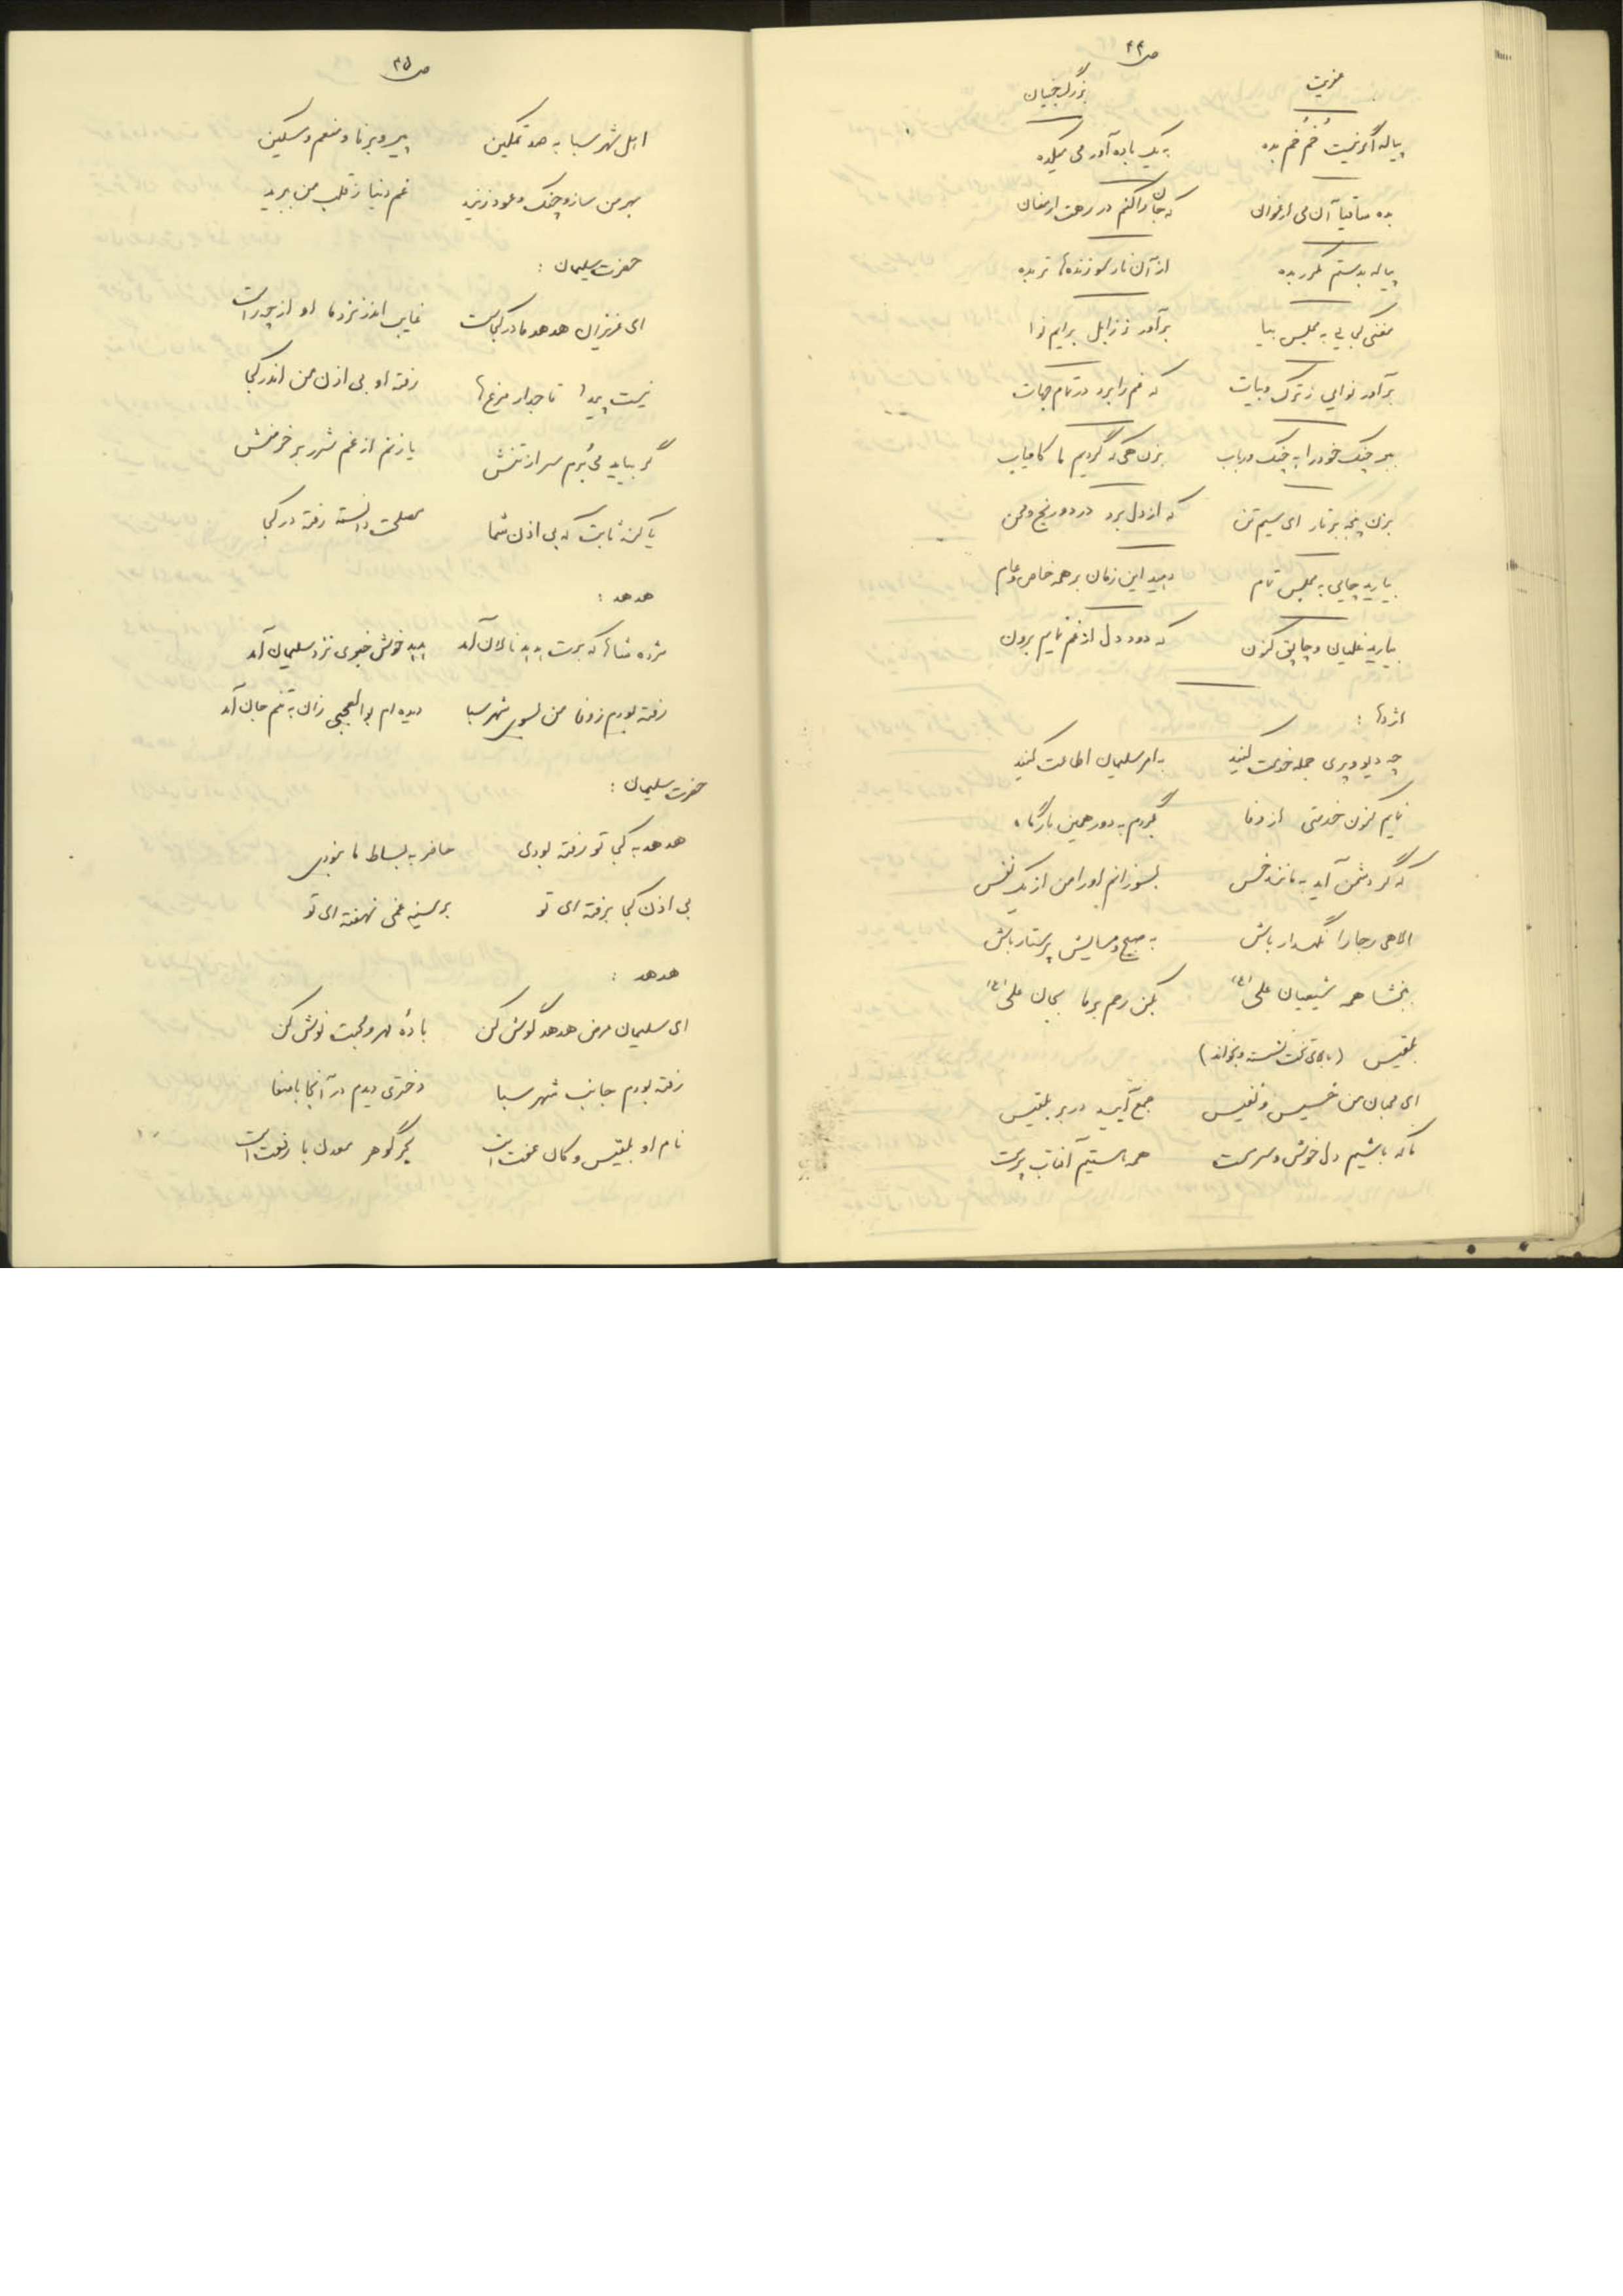 ص ۴۴
عزیمت بزرگ جنیان
پیاله اگر نیست خُم خُم بده به یک باده آور می میکده
بده ساقیا آن می ارغوان که جان را کنم در رهت ارمغان
پیاله بدستم مکرر بده از آن نار سوزنده‌تر بده
مغنی کجایی به مجلس بیا برآور ز زابل برایم نوا
برآور نوایی ز ترک و بیات که غم را برد در تمام جهات
ببر چنگ خود را به چنگ و رباب بزن که گردیم ما کامیاب
بزن پنجه بر تار ای سیم تن که از دل برد درد و رنج و محن
بیارید چایی به مجلس تمام دهید این زمان بر همه خاص و عام
بیارید غلیان و چاپق کنون که دود دل از غم نمایم برون
اژدها :
چه دیو و پری جمله خدمت کنید به امر سلیمان اطاعت کنید
نمایم کنون خدمتی از وفا بگردم به دور همین بارگاه
که گر دشمن آید به مانند خس بسوزانم او را من از یک نفس
الاهی رجا را نگهدار باش به صبح و مسایش پرستار باش
ببخشا همه شیعیان علی (ع) بکن رحم بر ما بجان علی (ع)
بلقیس (بالای تخت نشسته و بخواند)
ای محبان من خسیس و نفیس جمع آیید در بر بلقیس
تا که باشیم دل خوش و سرمست همه هستیم آفتاب پرست
ص ۴۵
اهل شهر سبا به صد تمکین پیر و برنا و منعم و مسکین
بهر من ساز و چنگ و عود زنید غم دنیا ز قلب من ببرید
حضرت سلیمان :
ای عزیزان هدهد ما در کجاست غایب اندر نزد ما او از چه راست
نیست پیدا تاجدار مرغها رفته او بی اذن من اندر کجا
گر بیاید می بُرم سر از تنش یا زنم از غم شرر بر خرمنش
یا کند ثابت که بی اذن شما مصلحت دانسته رفته در کجا
هدهد :
مژده شاها که برت هدهد نالان آمد هدهد خوش خبری نزد سلیمان آمد
رفته بودم ز وفا من بسوی شهر سبا دیده ام بوالعجبی زان به تنم جان آمد
حضرت سلیمان :
هدهد به کجا تو رفته بودی حاضر به بساط ما نبودی
بی اذن کجا برفته ای تو بر سینه غمی نهفته ای تو
هدهد :
ای سلیمان عرض هدهد گوش کن بادهٔ مهر و محبت نوش کن
رفته بودم جانب شهر سبا دختری دیدم در آنجا باصفا
نام او بلقیس و کان عفت است بحر گوهر معدن با رفعت است